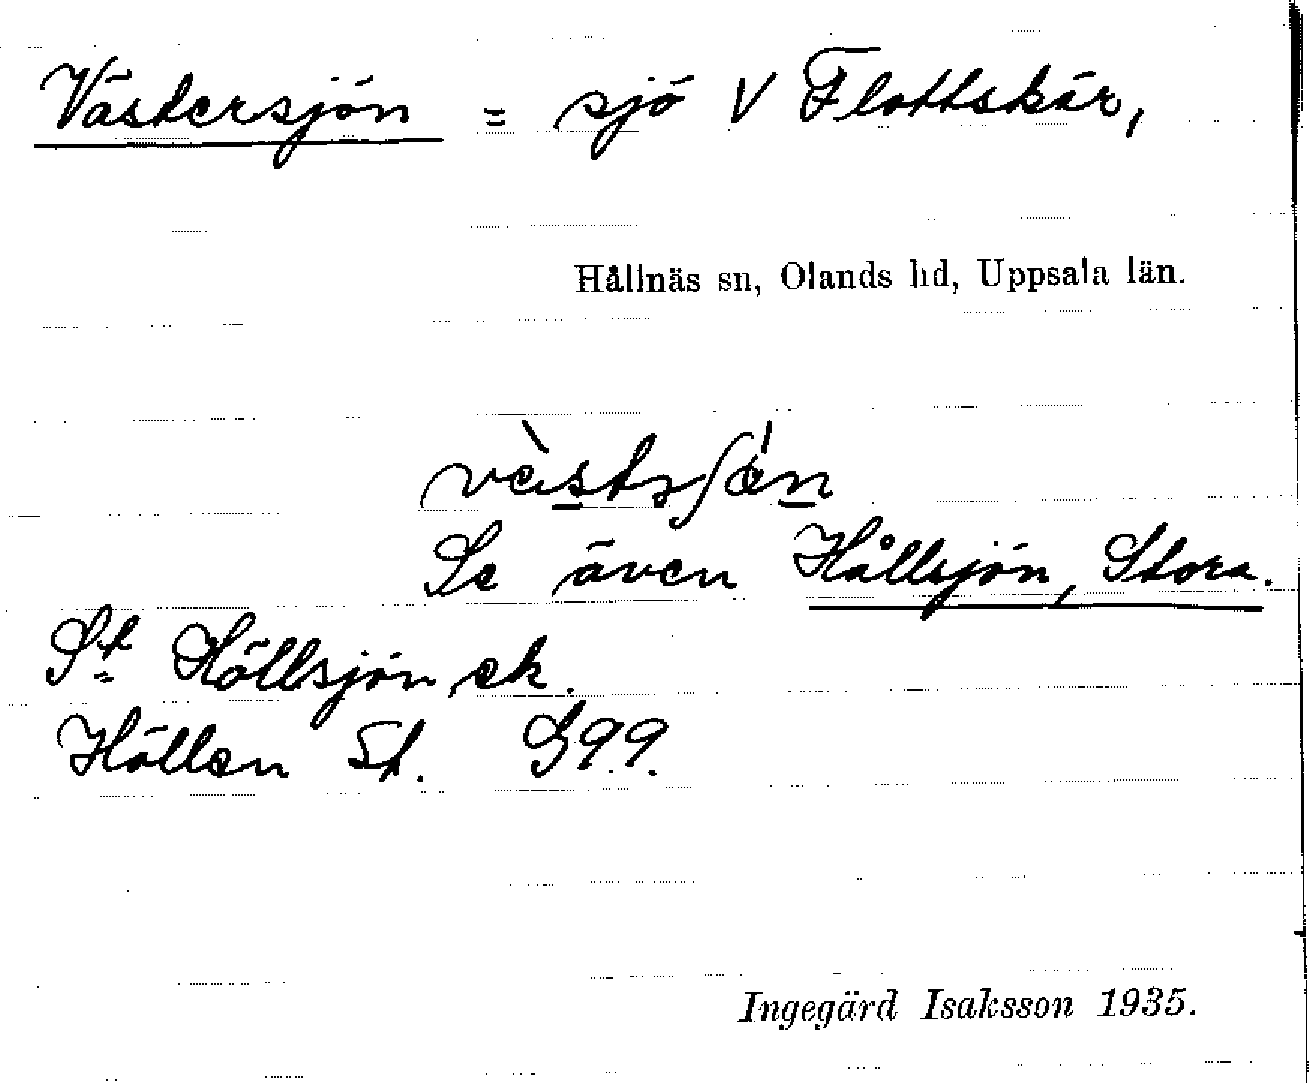 Västersjön = sjö V Flottskär,
Hållnäs sn, Olands hd, Uppsala län.
Se även Hållsjön, Stora.
St Hållsjön ek.
Hållen St. G99.
Ingegärd Isaksson 1935.